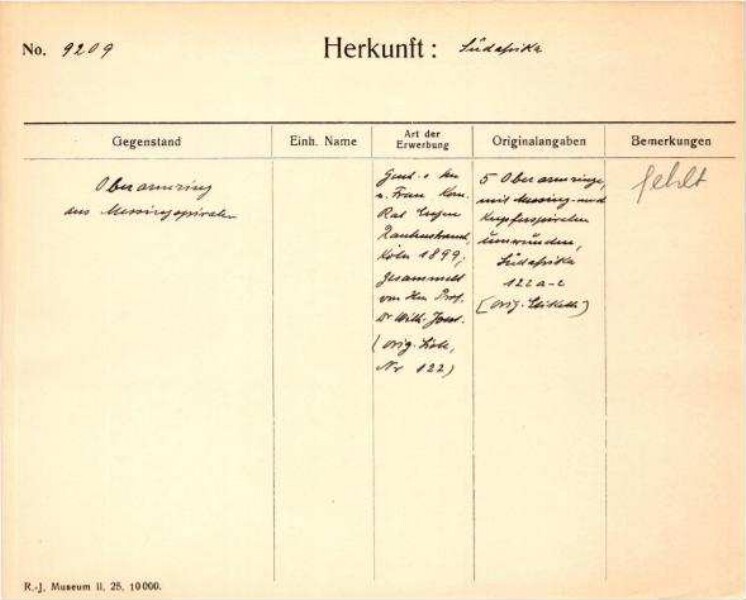 No. 9209
Herkunft: Südafrika
Gegenstand
Einh. Name
Art der
Erwerbung
Originalangaben
Bemerkungen
Oberarmring
aus Messingspiralen
Gesch. v. Hn
u. Frau Kom.
Rat Eugen
Rautenstrauch,
Köln 1899;
gesammelt
von Hn Prof.
Dr Wilh. Joest.
(orig. Liste,
Nr 122)
5 Oberarmringe,
mit Messing- und
Kupferspiralen
umwunden,
Südafrika
122 a-e
(orig. Etikett)
fehlt
R.-J. Museum II. 25. 10000.